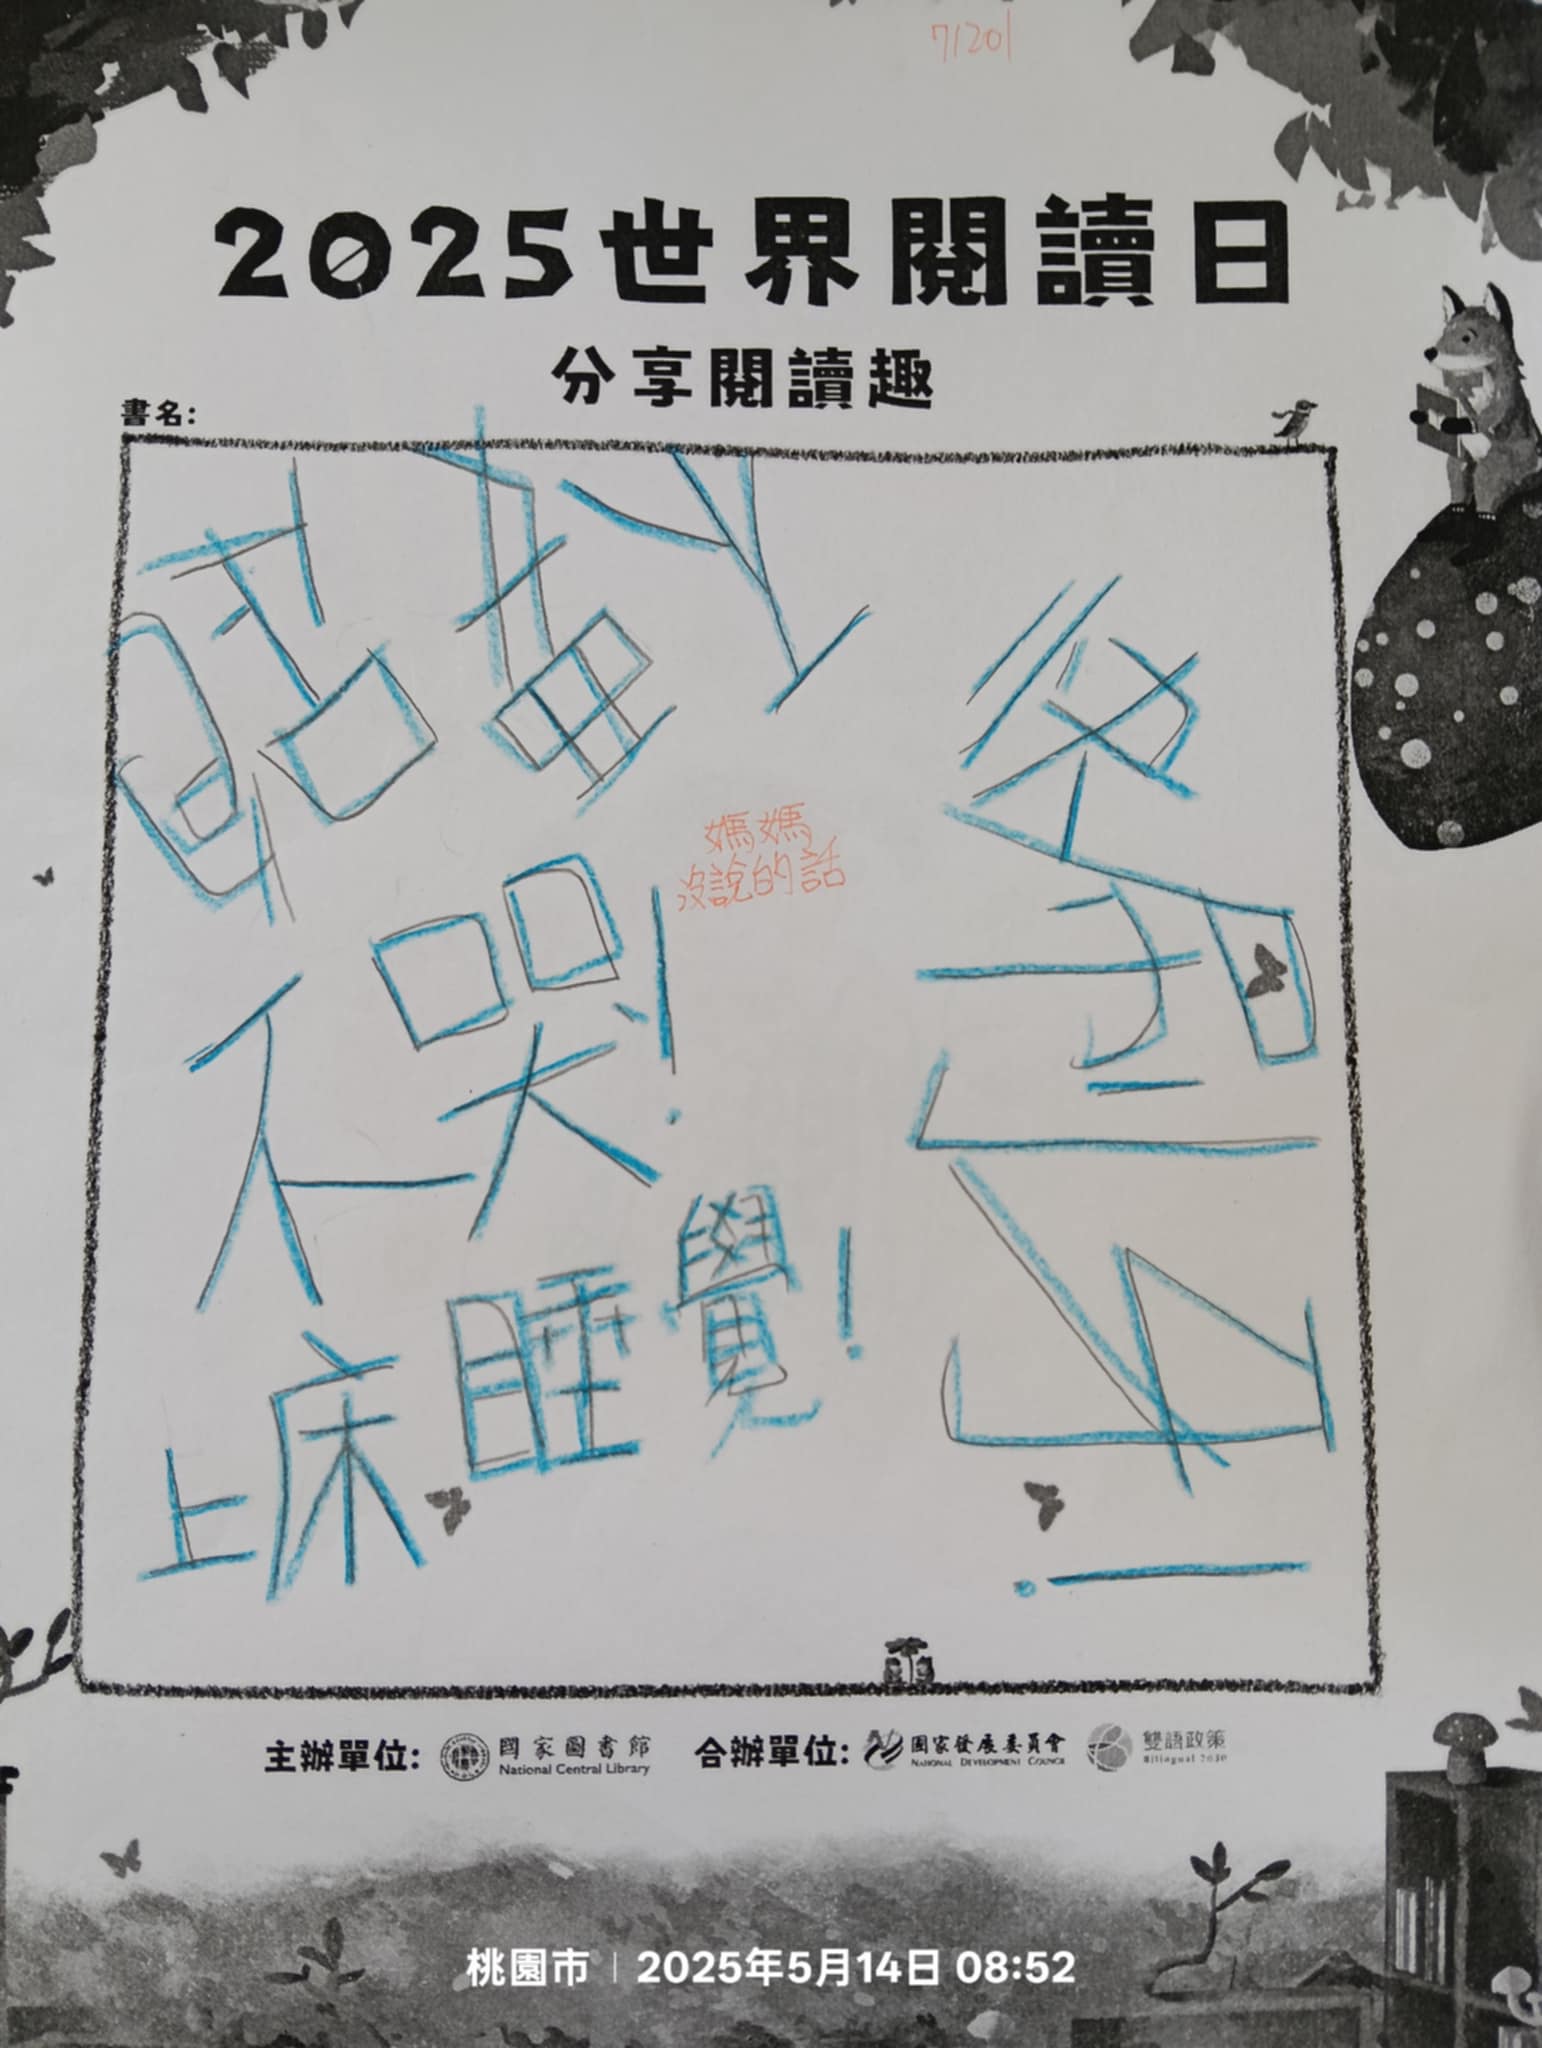 71201
2025世界閱讀日
分享閱讀趣
書名:
媽媽
沒說的話
不哭!
上床睡覺!
主辦單位: 國家圖書館 National Central Library 合辦單位: 國家發展委員會 NATIONAL DEVELOPMENT COUNCIL 雙語政策 Bilingual 2030
桃園市 | 2025年5月14日 08:52